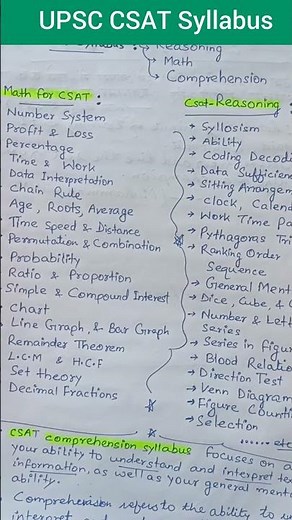 UPSC CSAT Syllabus
Syllabus : → Reasoning
→ Math
→ Comprehension
Math for CSAT :
Number System
Profit & Loss
Percentage
Time & Work
Data Interpretation
Chain Rule
Age, Roots, Average
Time Speed & Distance
Permutation & Combination
Probability
Ratio & Proportion
Simple & Compound Interest
Chart
Line Graph, & Bar Graph
Remainder Theorem
L.C.M & H.C.F
Set theory
Decimal Fractions
Csat-Reasoning :
→ Syllosism
→ Ability
→ Coding Decodi
→ Data Sufficien
→ Sitting Arrangem
→ clock, Calend
→ Work Time Pa
→ Pythagoras Tri
→ Ranking Order
Sequence
→ General Ment
→ Dice, Cube, & C
→ Number & Lett
Series
→ Series in figur
→ Blood Relatio
→ Direction Test
→ Venn Diagram
→ Figure Counti
→ Selection
...... etc
CSAT comprehension syllabus focuses on a
your ability to understand and interpret te
information, as well as your general menta
ability.
Comprehension refers to the ability to u
interpret